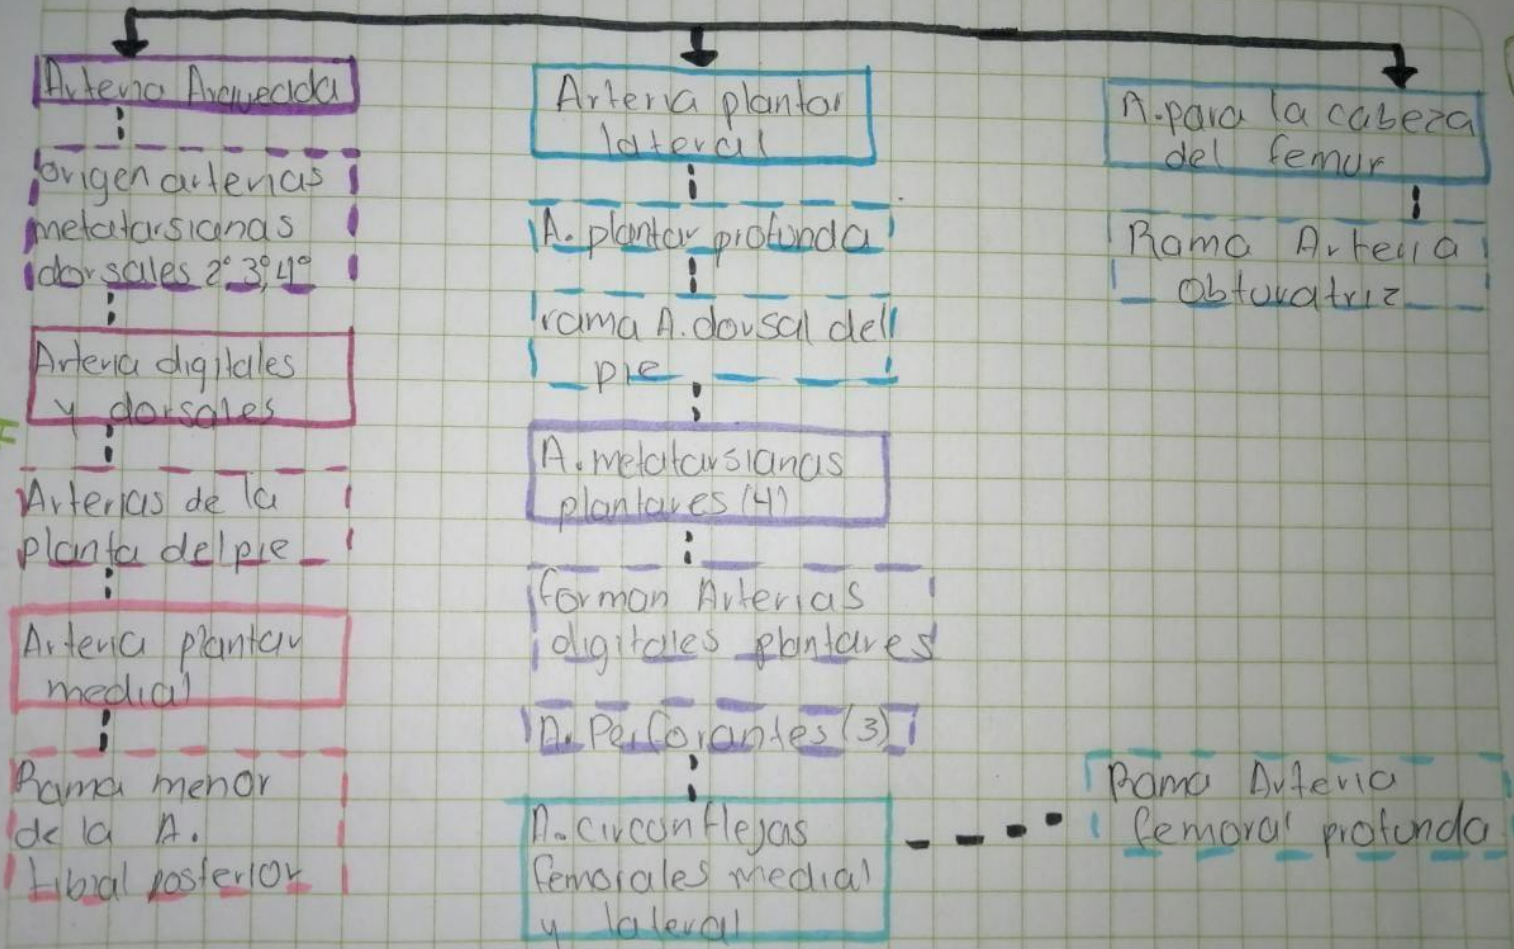 Arteria Arqueada
origen arterias
metatarsianas
dorsales 2° 3°, 4°
Arteria digitales
y dorsales
Arterias de la
planta del pie
Arteria plantar
medial
Rama menor
de la A.
tibial posterior
Arteria plantar
lateral
A. plantar profunda
rama A. dorsal del
pie
A. metatarsianas
plantares (4)
forman Arterias
digitales plantares
A. Perforantes (3)
A. circunflejas
femorales medial
y lateral
A. para la cabeza
del femur
Rama Arteria
Obturatriz
Rama Arteria
femoral profunda